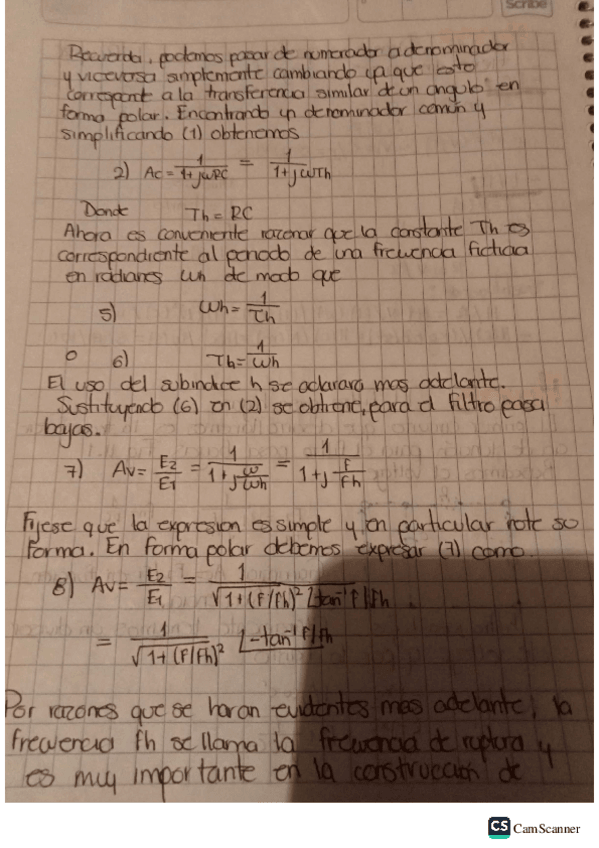 Scribe
Recuerda, podemos pasar de numerador a denominador
y viceversa simplemente cambiando j, ya que esto
correspont a la transferencia similar de un angulo en
forma polar. Encontrando un denominador común y
simplificando (1) obtenemos
2) Ac = 1/(1+jωRC) = 1/(1+jωTh)
Donde Th = RC
Ahora es conveniente razonar que la constante Th es
correspondiente al periodo de una frecuencia ficticia
en radianes ωh de modo que
5) ωh = 1/Th
o 6) Th = 1/ωh
El uso del subindice h se aclarara mas adelante.
Sustituyendo (6) en (2) se obtiene, para el filtro pasa
bajas.
7) Av = E2/E1 = 1/(1+j ω/ωh) = 1/(1+j f/fh)
Fijese que la expresion es simple y en particular note su
forma. En forma polar debemos expresar (7) como.
8) Av = E2/E1 = 1/(√1+(f/fh)² ∟tan⁻¹ f/fh)
= 1/√1+(f/fh)² ∟-tan⁻¹ f/fh
Por razones que se haran evidentes mas adelante, la
frecuencia fh se llama la frecuencia de ruptura y
es muy importante en la construccion de
CS CamScanner